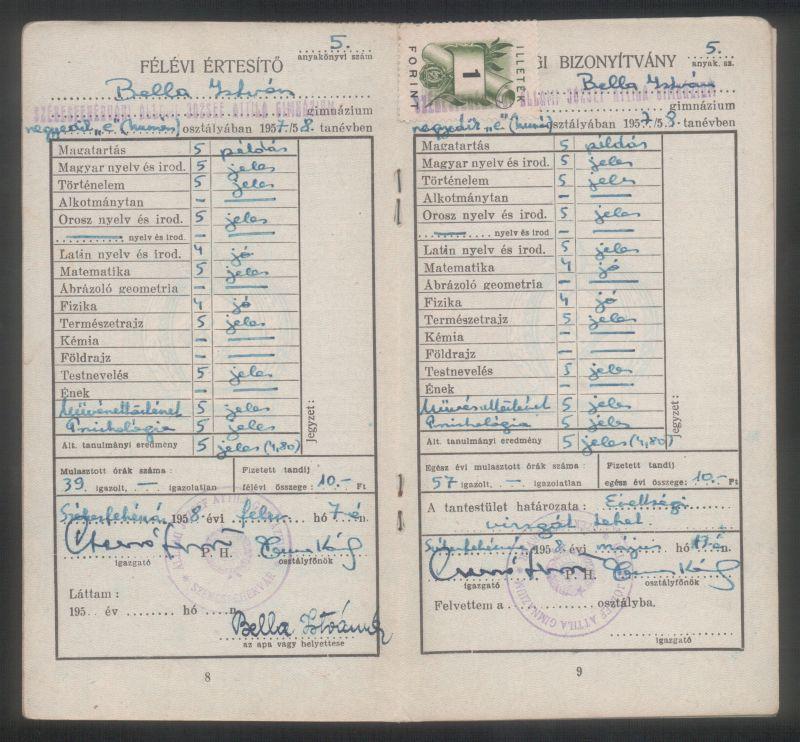 5.
anyakönyvi szám
FÉLÉVI ÉRTESÍTŐ
Bella István
SZÉKESFEHÉRVÁRI ÁLLAMI JÓZSEF ATTILA GIMNÁZIUM
gimnázium
negyedik „e" (humán) osztályában 1957/58. tanévben
Magatartás 5 példás
Magyar nyelv és irod. 5 jeles
Történelem 5 jeles
Alkotmánytan — —
Orosz nyelv és irod. 5 jeles
— nyelv és irod — —
Latin nyelv és irod. 4 jó
Matematika 5 jeles
Ábrázoló geometria — —
Fizika 4 jó
Természetrajz 5 jeles
Kémia — —
Földrajz — —
Testnevelés 5 jeles
Ének — —
Művészettörténet 5 jeles
Pszichológia 5 jeles
Ált. tanulmányi eredmény 5 jeles (4,80)
Jegyzet:
Mulasztott órák száma:
39. igazolt, — igazolatlan
Fizetett tandíj
félévi összege: 10.- Ft
Székesfehérvár, 1958 évi febr. hó 7-én.
P. H.
igazgató
osztályfőnök
SZÉKESFEHÉRVÁR
Láttam:
195 . év hó n
Bella Istvánné
az apa vagy helyettese
8
ILLETÉK
1
FORINT
5.
anyak. sz.
GI BIZONYÍTVÁNY
Bella István
ÁLLAMI JÓZSEF ATTILA GIMNÁZIUM
gimnázium
negyedik „e" (humán) osztályában 1957/58 tanévben
Magatartás 5 példás
Magyar nyelv és irod. 5 jeles
Történelem 5 jeles
Alkotmánytan — —
Orosz nyelv és irod. 5 jeles
nyelv és irod — —
Latin nyelv és irod. 5 jeles
Matematika 4 jó
Ábrázoló geometria — —
Fizika 4 jó
Természetrajz 5 jeles
Kémia — —
Földrajz — —
Testnevelés 5 jeles
Ének — —
Művészettörténet 5 jeles
Pszichológia 5 jeles
Ált. tanulmányi eredmény 5 jeles (4,80)
Jegyzet:
Egész évi mulasztott órák száma:
57 igazolt, — igazolatlan
Fizetett tandíj
egész évi összege: 10.- Ft
A tantestület határozata: Érettségi
vizsgát tehet
Székesfehérvár, 1958. évi május hó 17-én.
P. H.
igazgató
osztályfőnök
JÓZSEF ATTILA GIMNÁZIUM
Felvettem a osztályba.
igazgató
9